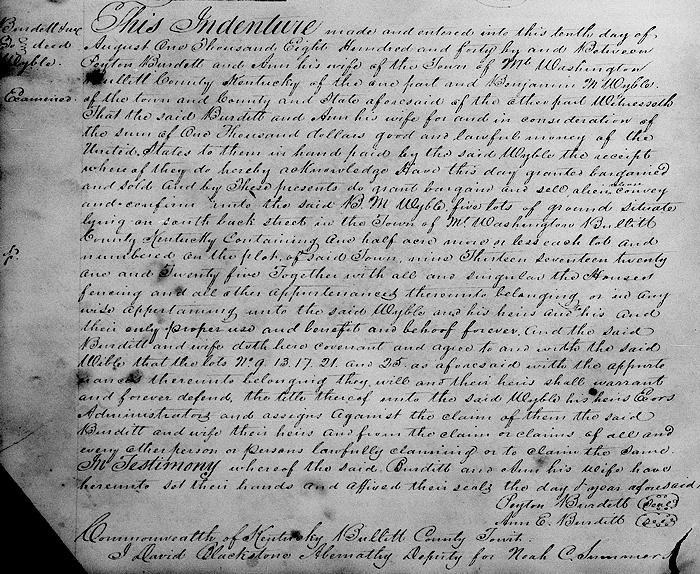 Burdett &c
To } deed
Wyble.
Examined.
This Indenture made and entered into this tenth day of
August One Thousand Eight Hundred and forty by and Between
Peyton Burdett and Ann his wife of the Town of Mt Washington
Bullitt County Kentucky of the one part and Benjamin M Wyble
of the town and County and State aforesaid of the other part Witnesseth
That the said Burditt and Ann his wife for and in consideration of
the sum of One Thousand dollars good and lawful money of the
United States to them in hand paid by the said Wyble the receipt
where of they do hereby acknowledge Have this day granted bargained
and sold And by These presents do grant bargain and sell alien convey
and confirm unto the said B. M Wyble five lots of ground situate
lying on south back street in the Town of Mt Washington Bullitt
County Kentucky Containing One half acre more or less each lot and
numbered on the plot, of said Town, nine Thirteen seventeen twenty
one and Twenty five Together with all and singular the Houses
fencing and all other appurtenances thereunto belonging or in any
wise appertaining unto the said Wyble and his heirs and his and
their only proper use and benefit and behoof forever. And the said
Burditt and wife doth here covenant and agree to and with the said
Wible that the lots No 9. 13. 17. 21. and 25. as aforesaid with the appurte
nances thereunto belonging they will and their heirs shall warrant
and forever defend, the title thereof unto the said Wyble his heirs Exors
Administrators and assigns against the claim of them the said
Burditt and wife their heirs and from the claim or claims of all and
every other person or persons lawfully claiming or to claim the same
In Testimony whereof the said, Burditt and Ann his wife have
hereunto set their hands and affixed their seals the day & year aforesaid,
Peyton Burdett Seal
Ann E. Burditt Seal
Commonwealth of Kentucky Bullitt County Towit:
I David Blackstone Abernathy Deputy for Noah C. Summers